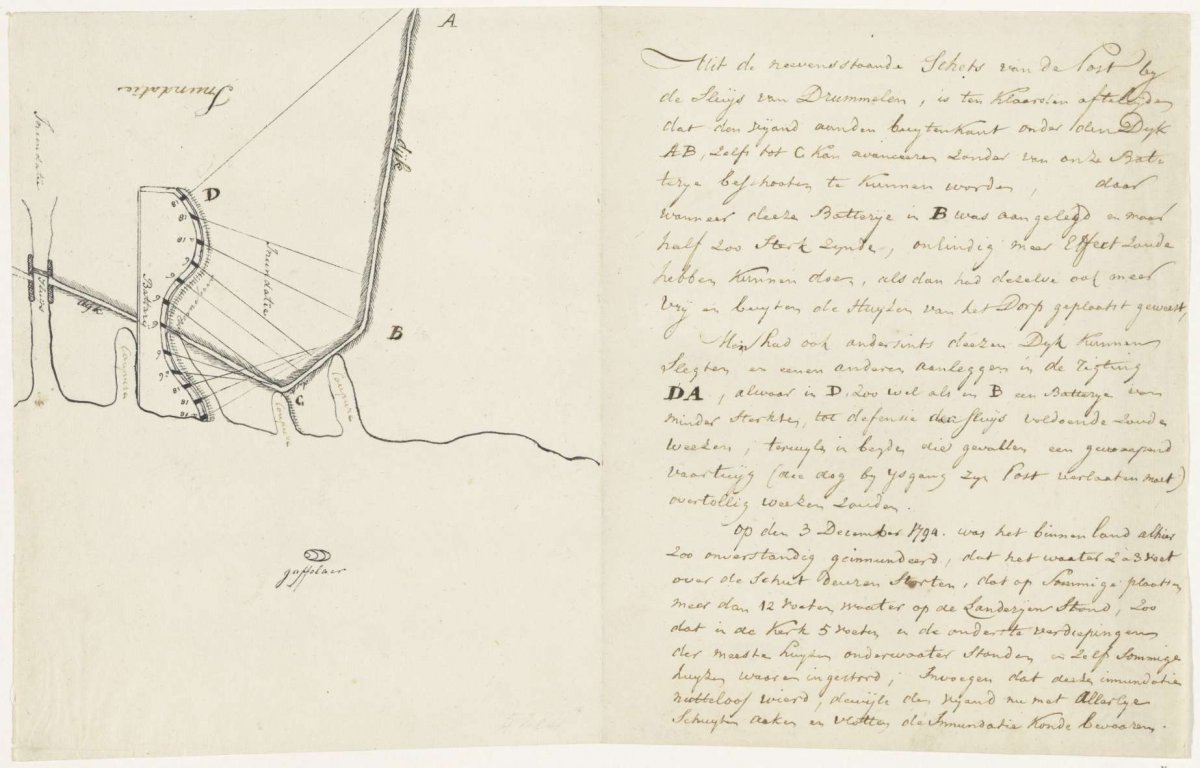 A
Inundatie
Inundatie
Dijk
D
8
18
18
12
6
6
6
6
6
18
18
18
Batterij
Inundatie
Sluis
Dijk
B
C
Coupure
Coupure
Coupure
gaffelaer
Uit de nevensstaande Schets van de Post by
de Sluijs van Drummelen, is ten klaarsten afteleyden
dat den vijand aanden buytenkant onder den Dyk
AB, zelfs tot C kan avanceeren zonder van onze Bate
terye beschooten te kunnen worden, daar
wanneer deeze Batterye in B was aangelegd en maar
half zoo Sterk zynde, onlindig meer Effect zoude
hebben kunnen doen, als dan had dezelve ook meer
vrij en buyten de Huyzen van het Dorp geplaatst geweest,
Men had ook andersints deezen Dyk kunnen
Slegten en eenen anderen aanleggen in de rigting
DA, alwaar in D zoo wel als in B een Batterye van
minder Sterkte, tot defensie der sluijs voldoende zoude
weezen, terwyle in beyde die gevallen een gewaapend
vaartuijg (die dog by ysgang zyn Post verlaaten moet)
overtollig weezen zouden.
Op den 3 December 1794. was het binnen land alhier
zoo onverstandig geinundeerd, dat het waater 2 a 3 voet
over de Schut deuren Storten, dat op Sommige plaatsen
meer dan 12 voeten waater op de Landeryen Stond, zoo
dat in de Kerk 5 voeten en de onderste verdiepingen
der meeste huyzen onderwaater Stonden en zelfs Sommige
huyzen waaren ingestord; Invoegen dat deeze inundatie
nutteloos wierd, dewijle den vijand nu met Allerlye
Schuyten aaken en vlotten de Inundatie konde bevaaren.